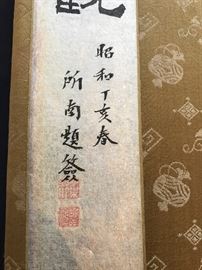 昭和丁亥春
所南題簽